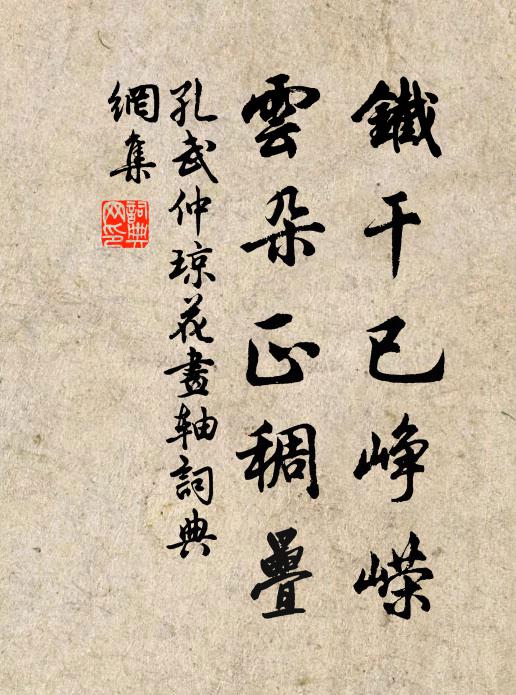 鐵干已崢嶸
雲朵正稠疊
孔武仲琼花畫軸詞典
網集
詞典
网印